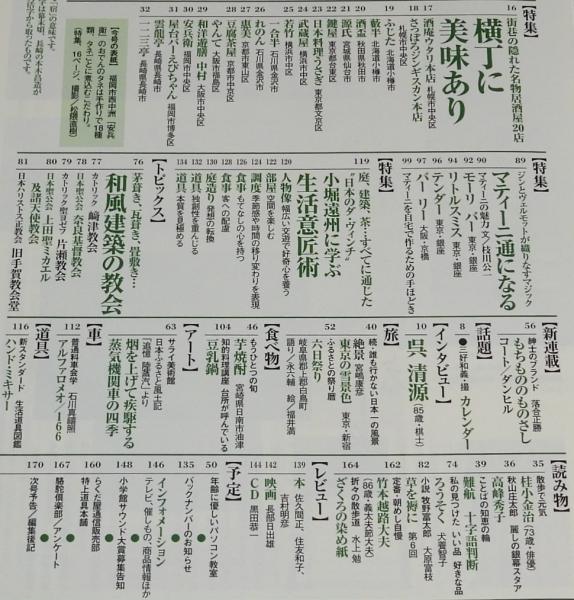 【特集】
16 街巷の隠れた名物居酒屋20店
横丁に
美味あり
17 さっぽろジンギスカン本店 札幌市中央区
18 酒庵アタリ本店 札幌市中央区
19 ふじた 北海道小樽市
20 藪半 北海道小樽市
21 酒盃 秋田県秋田市
22 源氏 宮城県仙台市
22 鍵屋 東京都台東区
23 日本料理うさぎ 東京都文京区
24 武蔵屋 横浜市中区
25 若竹 横浜市中区
25 一合半 石川県金沢市
26 れのん 石川県金沢市
27 恵美 京都市東山区
28 豆腐茶屋 京都市中京区
28 やんて 大阪市福島区
29 和洋遊膳 中村 大阪市中央区
30 安兵衛 福岡市中央区
31 屋台バーえびちゃん 福岡市博多区
31 雲龍亭 長崎県長崎市
32 一二三亭 長崎県長崎市
【今号の表紙】
福岡市西中洲「安兵
衛」のおでんのタネは手作りで18種
類。タネごとに煮込むこだわり。
（特集、16ページ、撮影／秋隈直樹）
【特集】
89 ジンとヴェルモットが織りなすマジック
マティーニ通になる
90 マティーニの魅力 文／枝川公一
92 モーリ・バー 東京・銀座
94 リトルスミス 東京・銀座
96 テンダー 東京・銀座
97 バー・リー 大阪・京橋
99 マティーニを自宅で作るための手ほどき
【特集】
119 庭、建築、茶…すべてに通じた
“日本のダ・ヴィンチ”
小堀遠州に学ぶ
生活意匠術
120 人物像 幅広い交遊で好奇心を養う
122 部屋 空間を楽しむ
124 調度 季節感や時間の移り変わりを表現
126 食事 もてなしの心を持つ
128 食事 客への配慮
130 庭造り 発想の転換
132 道具 独創性を重んじる
134 道具 本質を見極める
【トピックス】
76 茅葺き、瓦葺き、畳敷き…
和風建築の教会
77 カトリック 﨑津教会
78 日本聖公会 奈良基督教会
79 カトリック聖ヨゼフ 片瀬教会
80 日本聖公会 上田聖ミカエル
及諸天使教会
81 日本ハリストス正教会 旧手賀教会堂
【新連載】
56 紳士のブランド 落合正勝
もちもののものさし
コート／ダンヒル
【話題】
8 ●三好和義・撮 カレンダー
【インタビュー】
10 呉 清源（85歳・棋士）
【旅】
40 続・誰も行かない日本一の風景
絶景 宮嶋康彦
東京の雪景色 東京・新宿
52 ふるさとの祭り暦
六日祭り
岐阜県郡上郡白鳥町
語り／永六輔 絵／福井満
【食べ物】
46 もうひとつの旬
芋焼酎 宮崎県日南市油津
104 知的料理講座 台所が呼んでいる
豆乳鍋
【アート】
63 サライ美術館
日本ふるさと風土記
「追憶 陸蒸汽」より
煙を上げて疾駆する
蒸気機関車の四季
【車】
112 普通科車会学 石川真禧照
アルファロメオ／166
【道具】
116 新スタンダード 生活道具図鑑
ハンド・ミキサー
【読み物】
35 散歩で元気
桂小金治（73歳・俳優）
36 秋山庄太郎 麗しの銀幕スタア
高峰秀子
39 ことばの知恵の輪
難航 十字語判断
74 私の見つけた いい品 好きな品
ろうそく 犬養智子
82 小説 牧野富太郎 大原富枝
草を褥に 第6回
162 定番・朝めし自慢
竹本越路大夫
（86歳・義太夫節大夫）
164 折々の散歩道 水上勉
ざくろの染め紙
【レビュー】
139 本 佐久間正、住友和子、
吉村明彦
142 映画 長部日出雄
144 CD 黒田恭一
【予定】
50 年齢に優しいパソコン教室
135 バックナンバーのお知らせ
146 インフォメーション
テレビ、催しもの、商品情報ほか
148 小学館サウンド大賞募集告知
160 らくだ屋通信販売部
特上道具本舗
167 駱駝倶楽部／アンケート
170 次号予告／編集後記